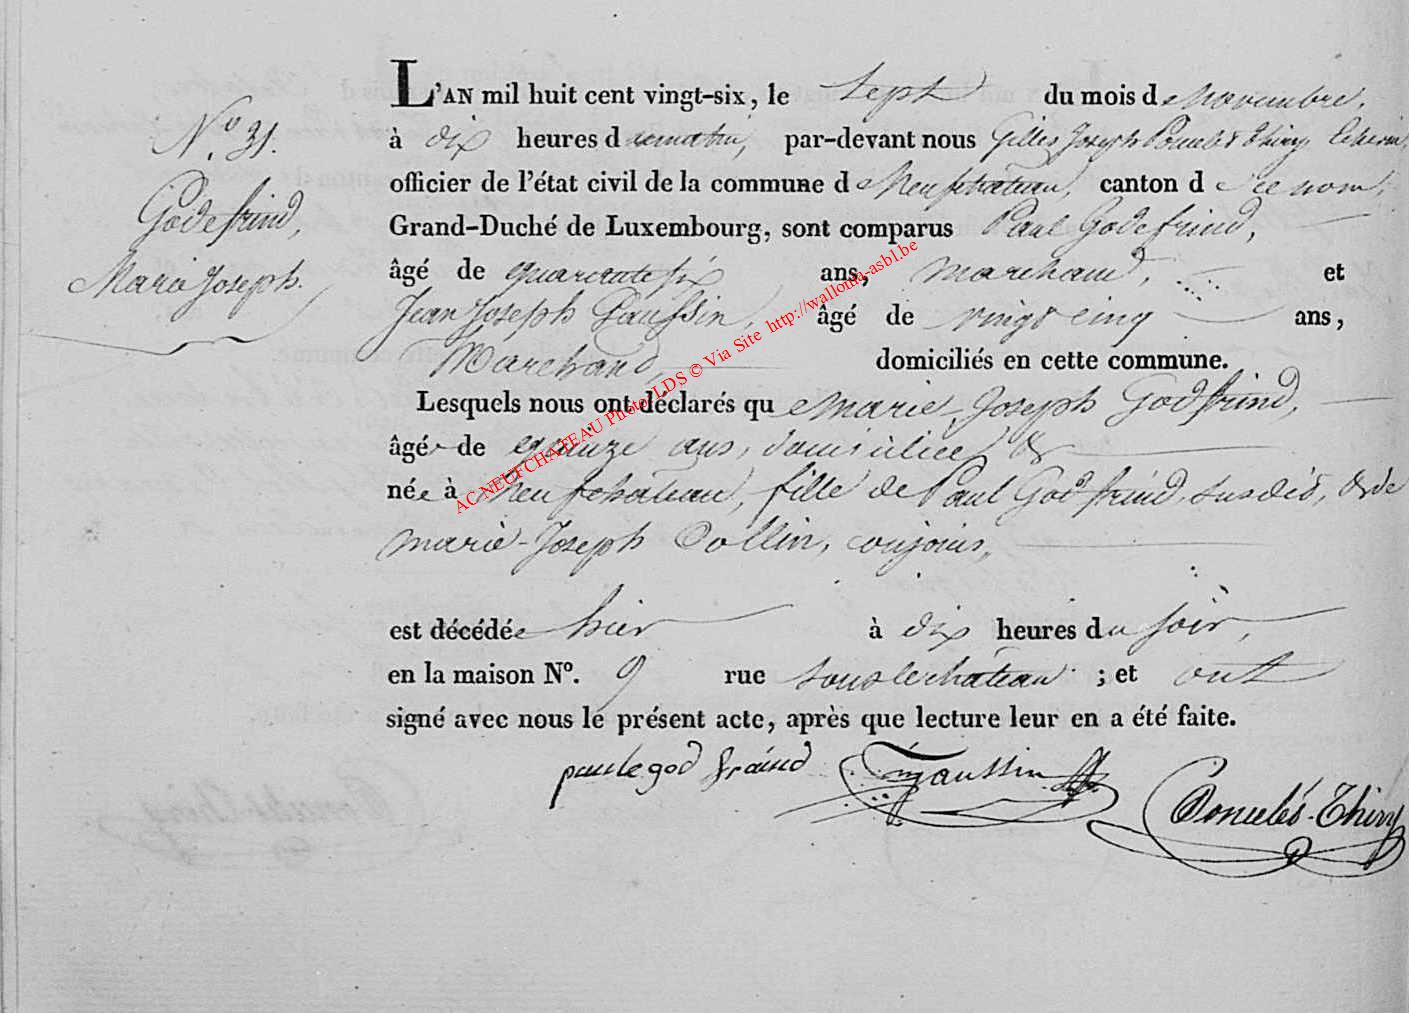 N.º 31.
Godefrind,
Marie Joseph.
L'AN mil huit cent vingt-six, le sept du mois de novembre,
à dix heures du matin, par-devant nous Gilles Joseph Thiry
officier de l'état civil de la commune de Neufchateau, canton de ce nom,
Grand-Duché de Luxembourg, sont comparus Paul Godefrind,
âgé de quarante six ans, marchand, et
Jean Joseph Gaussin, âgé de vingt cinq ans,
Marchand, domiciliés en cette commune.
Lesquels nous ont déclarés que marie-Joseph Godfrind,
âgée de quinze ans, domiciliée &
née à Neufchateau, fille de Paul Godfrind susdit, & de
marie-Joseph Collin, conjoints,
est décédée hier à dix heures du soir,
en la maison Nº. 9 rue sous le chateau ; et ont
signé avec nous le présent acte, après que lecture leur en a été faite.
paule god fraind Gaussin Thiry
AC NEUFCHATEAU Photo LDS © Via Site http://wallonia-asbl.be